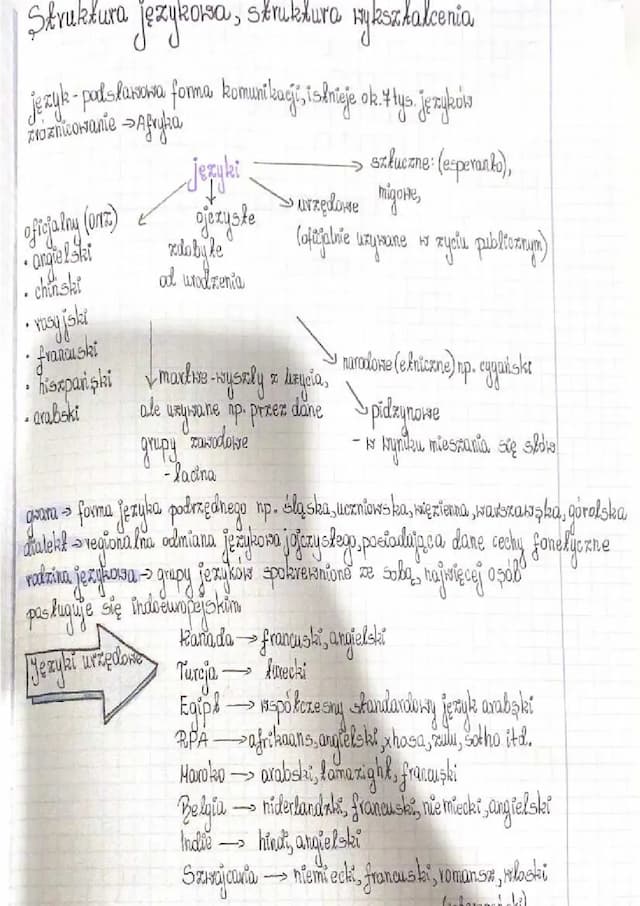 Struktura językowa, struktura wykształcenia
język - podstawowa forma komunikacji, istnieje ok. 7 tys. języków
zróżnicowanie → Afryka
języki
→ sztuczne: (esperanto),
migowe,
→ urzędowe
(oficjalnie używane w życiu publicznym)
ojczyste
zdobyte
od urodzenia
oficjalny (ONZ)
• angielski
• chiński
• rosyjski
• francuski
• hiszpański
• arabski
martwe - wyszły z użycia,
ale używane np. przez dane
grupy zawodowe
- łacina
narodowe (etniczne) np. cygański
pidżynowe
- w wyniku mieszania się słów
gwara → forma języka podrzędnego np. śląska, uczniowska, więzienna, warszawska, góralska
dialekt → regionalna odmiana językowa ojczystego, posiadająca dane cechy fonetyczne
rodzina językowa → grupy języków spokrewnione ze sobą, najwięcej osób
pasługuje się indoeuropejskim
Języki urzędowe
Kanada → francuski, angielski
Turcja → turecki
Egipt → współczesny standardowy język arabski
RPA → afrikaans, angielski, xhosa, zulu, sotho itd.
Maroko → arabski, tamazight, francuski
Belgia → niderlandzki, francuski, niemiecki, angielski
Indie → hindi, angielski
Szwajcaria → niemiecki, francuski, romansz, włoski